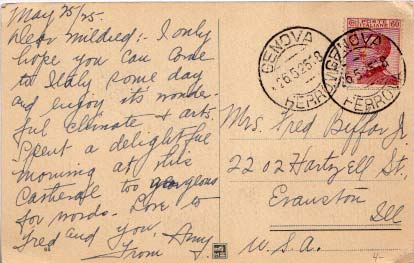 May 25/25.
Dear Mildred:- I only
hope you can come
to Italy some day
and enjoy its wonder-
ful climate & arts.
Spent a delightful
morning at this
Cathedral too gorgeous
for words. Love to
Fred and you.
From Amy.
GENOVA
26.5.25-8
FERROVIA
GENOVA
6.5.25-8
FERROVIA
60
Mrs. Fred Beffar Jr.
2202 Hartzell St.
Evanston
Ill
U.S.A.